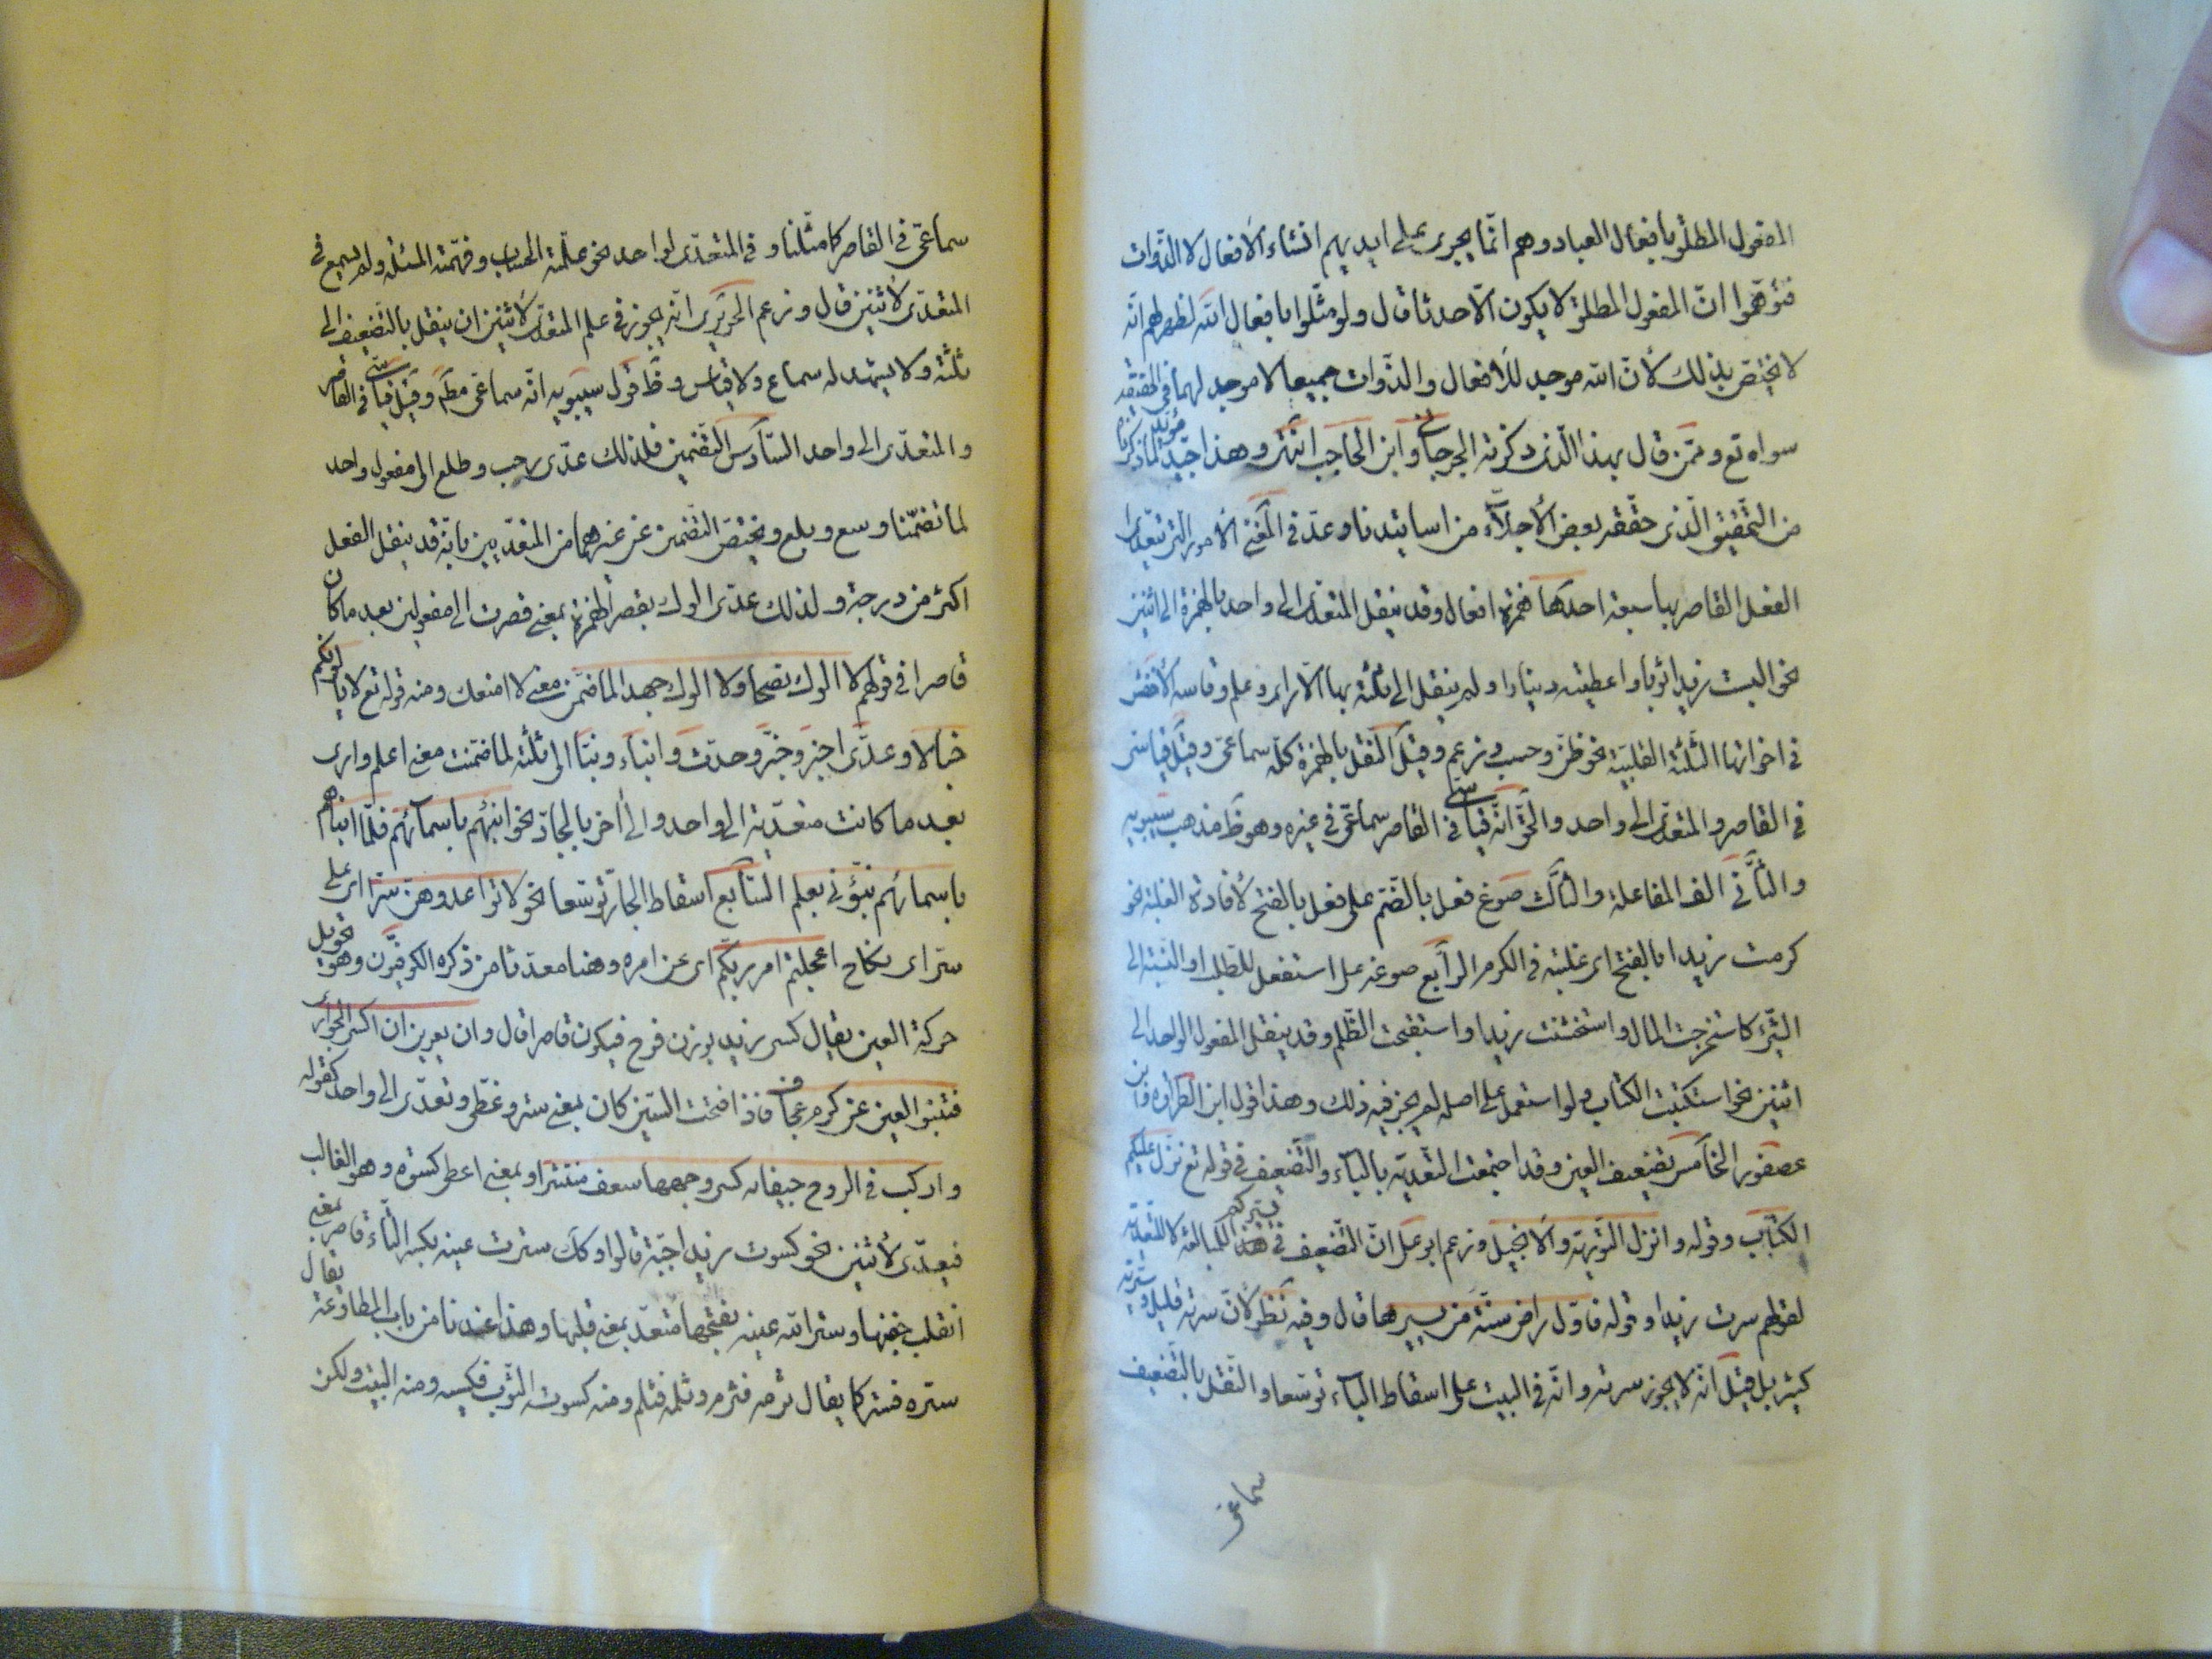 المفعول المطلق بافعال العباد وهم انّما يجرى على ايديهم انشاء الأفعال لا الذّوات
فتوهّموا انّ المفعول المطلق لا يكون الّا حدثا قال ولو مثّلوا بافعال اللّه لظهر لهم انّه
لا يختصّ بذلك لأنّ اللّه موجد للأفعال والذّوات جميعا لا موجد لهما فى الحقيقة
سواه تع وممّن قال بهذا الّذى ذكرته الجرجانى وابن الحاجب انتهى وهذا جيّد مؤيّد لما ذكرناه
من التّحقيق الّذى حققه بعض الأجلّاء من اساتيدنا وعدّ فى المغنى الأمور الّتى يتعدّى
الفعل القاصر بها سبعة احدها همزة افعال وقد ينقل المتعدّى الى واحد بالهمزة الى اثنين
نحو البست زيدا ثوبا واعطيته دينارا ولم ينقل الى ثلثة بها الّا راى وعلم وقاسه الأخفش
فى اخواتها الثّلثة القلبيّة نحو ظنّ وحسب وزعم وقيل النّقل بالهمزة كلّه سماعىّ وقيل قياسى
فى القاصر والمتعدّى الى واحد والحقّ انّه قياسى فى القاصر سماعىّ فى غيره وهو ظ مذهب سيبويه
والثّانى الف المفاعلة والثّالث صوغ فعل بالضّم على فعل بالفتح لأفادة الغلبة نحو
كرمت زيدا بالفتح اى غلبته فى الكرم الرّابع صوغه على استفعل للطّلب او النّسبة الى
الشّئ كاستخرجت المال واستحسنت زيدا واستقبحت الظّلم وقد ينقل المفعول الواحد الى
اثنين نحو استكتبت الكتاب ولو استعمل على اصله لم يجز فيه ذلك وهذا قول ابن الطراوة وابن
عصفور الخامس تضعيف العين وقد اجتمعت التّعدية بالباء والتّضعيف فى قوله تع نزّل عليكم
الكتاب وقوله وانزل التّورية والأنجيل وزعم ابو على انّ التّضعيف فى هذا للمبالغة لا للتّعدية
لقولهم سرت زيدا وقوله فاوّل راض سنّة من يسيرها قال وفيه نظر لأنّ سرته قليل وسيّرته
كثير بل قيل انّه لا يجوز سرته وانّه فى البيت على اسقاط الباء توسّعا والنّقل بالتّضعيف
سماعى
سماعىّ فى القاصر كما مثّلنا و فى المتعدّى لواحد نحو علّمته الحساب وفهّمته المسئلة ولم يسمع فى
المتعدّى لأثنين قال وزعم الحريرى انّه يجوز فى علم المتعدّى لأثنين ان ينقل بالتّضعيف الى
ثلثة ولا يشهد له سماع ولا قياس وظ قول سيبويه انّه سماعىّ مطم وقيل قياسى فى القاصر
والمتعدّى الى واحد السّادس التّضمين فلذلك عدّى رحب وطلع الى مفعول واحد
لما تضمّنا وسع وبلغ ويختصّ التّضمين عن غيرهما من المتعدّيين بانّه قد ينقل الفعل
اكثر من درجة ولذلك عدّى الوت بقصر الهمزة بمعنى قصرت الى مفعولين بعد ما كان
قاصرا فى قولهم لا الوك نصحا ولا الوك جهدا لما ضمّن معنى لا امنعك ومنه قوله تع لا يألونكم
خبالا وعدّى اخبر وخبّر وحدّث وانباء ونبّا الى ثلثة لما ضمّنت معنى اعلم وارى
بعد ما كانت متعدّية الى واحد والى أخر بالجارّ نحو انبئهم باسمآئهم فلمّا انبأهم
باسمائهم نبّؤنى بعلم السّابع اسقاط الجارّ توسّعا نحو لا تواعدوهنّ سرّا اى على
سرّ اى نكاح اعجلتم امر ربّكم اى عن امره وهنا معدّ ثامن ذكره الكوفيّون وهو تحويل
حركة العين يقال كسى زيد بوزن فرح فيكون قاصرا قال وان يعرين ان كسى الجوارى
فتنبو العين عن كرم عجاف فاذا فتحت السّين كان بمعنى ستر وغطّى وتعدّى الى واحد كقوله
واركب فى الروع خيفانه كسى وجهها سعف منتشر او بمعنى اعطى كسوة وهو الغالب
فيعدّى لأثنين نحو كسوت زيدا جبّة قالوا وكك شترت عينه بكسر التّاء قاصر بمعنى
انقلب جفنها وشتر اللّه عينه بفتحها متعدّ بمعنى قلبها وهذا عندنا من باب المطاوعة يقال
شتره فشتر كما يقال ثرمه فثرم وثلمه فثلم ومنه كسوت الثّوب فكسيه ومنه البيت ولكن